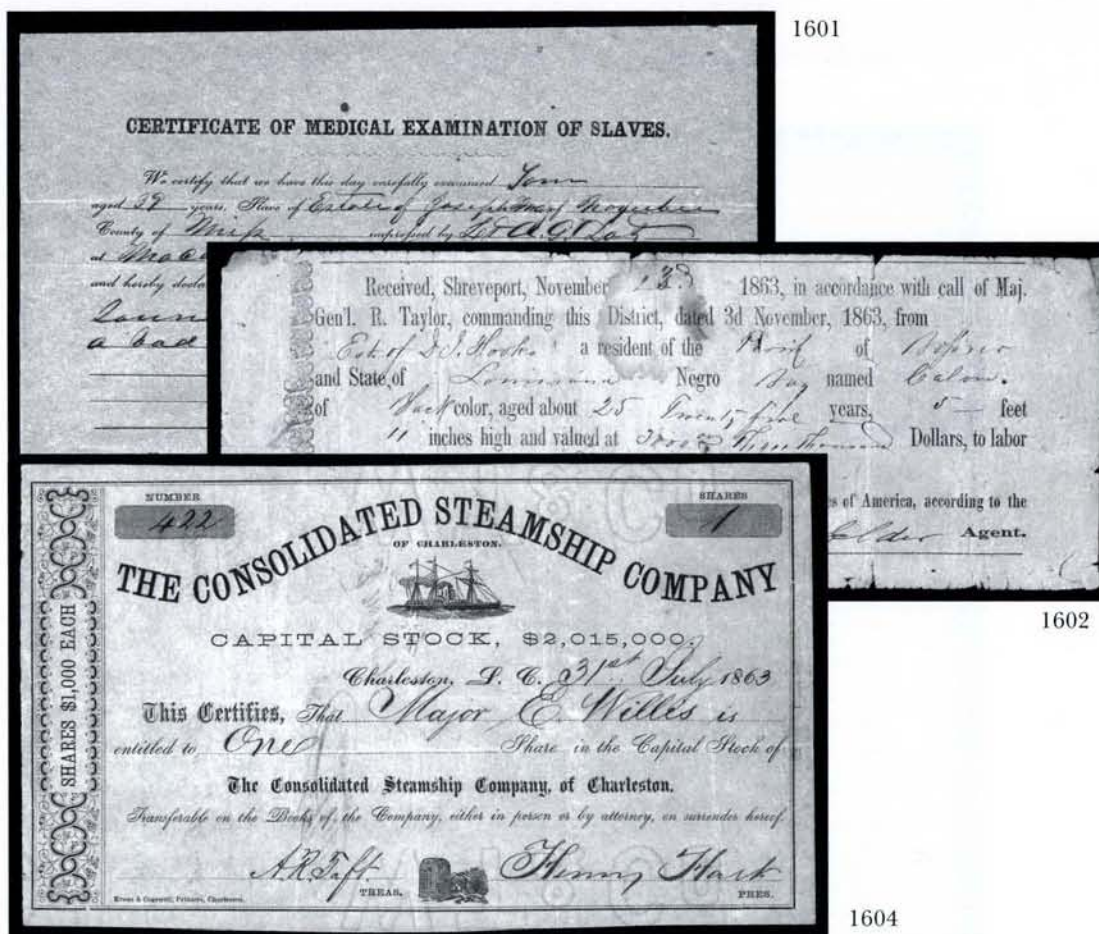 1601
CERTIFICATE OF MEDICAL EXAMINATION OF SLAVES.
We certify that we have this day carefully examined Tom
aged years, Slave of Estate of Joseph
County of impressed by Lt. A. G.
at
and hereby
a bad
Received, Shreveport, November 23 1863, in accordance with call of Maj.
Gen'l. R. Taylor, commanding this District, dated 3d November, 1863, from
Est. of D. J. Hooks a resident of the of
and State of Louisiana Negro named
of color, aged about 25 Twenty five years, 5 feet
11 inches high and valued at Dollars, to labor
of America, according to the
Agent.
1602
NUMBER
422
SHARES
1
THE CONSOLIDATED STEAMSHIP COMPANY
OF CHARLESTON.
CAPITAL STOCK, $2,015,000.
Charleston, S. C. 31st July 1863
This Certifies, That Major E. Willis is
entitled to One Share in the Capital Stock of
The Consolidated Steamship Company, of Charleston.
Transferable on the Books of the Company, either in person or by attorney, on surrender hereof.
A.R. Taft
TREAS.
Henry Hart
PRES.
Evans & Cogswell, Printers, Charleston.
SHARES $1,000 EACH
1604